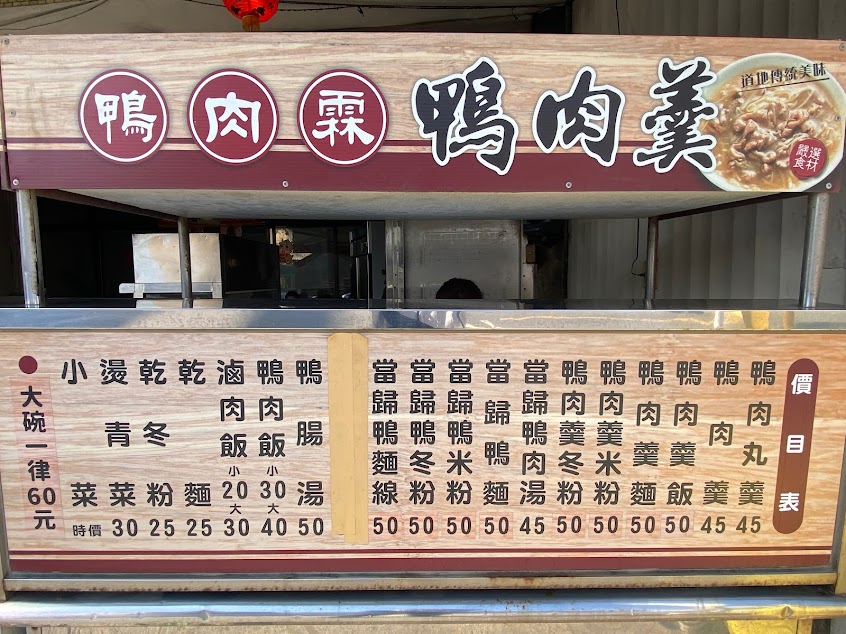 鴨肉霖 鴨肉羹
道地傳統美味
嚴選食材
價目表
鴨肉丸羹 45
鴨肉羹 45
鴨肉羹飯 50
鴨肉羹麵 50
鴨肉羹米粉 50
鴨肉羹冬粉 50
當歸鴨肉湯 45
當歸鴨麵 50
當歸鴨米粉 50
當歸鴨冬粉 50
當歸鴨麵線 50
鴨腸湯 50
鴨肉飯 小30 大40
滷肉飯 小20 大30
乾麵 25
乾冬粉 25
燙青菜 30
小菜 時價
大碗一律60元